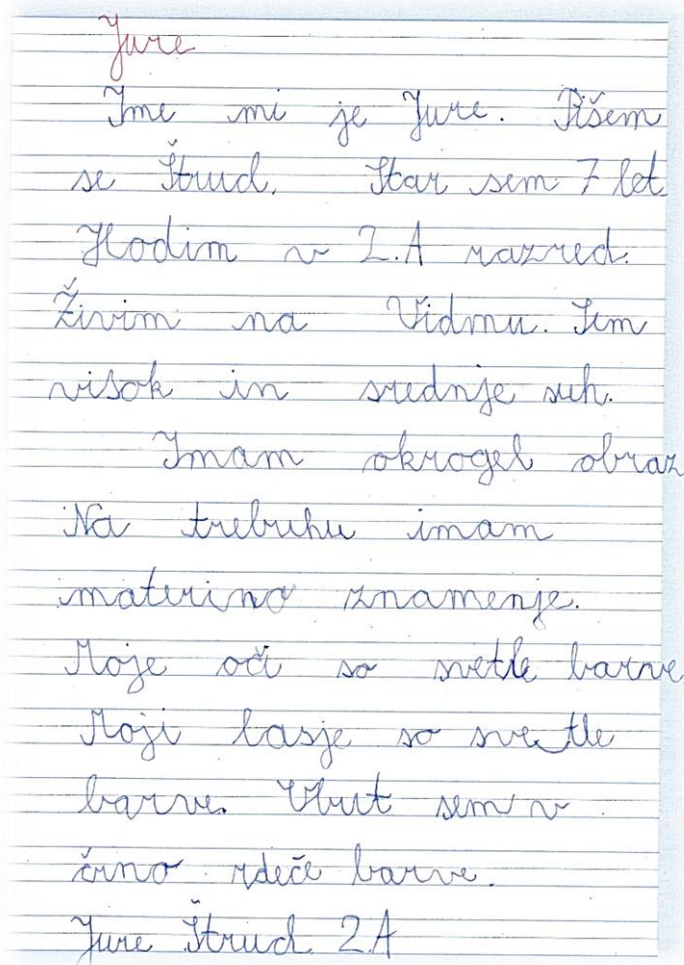 Jure
Ime mi je Jure. Pišem
se Štrud. Star sem 7 let.
Hodim v 2.A razred.
Živim na Vidmu. Sem
visok in srednje suh.
Imam okrogel obraz
Na trebuhu imam
materino znamenje.
Moje oči so svetle barve
Moji lasje so svetle
barve. Obut sem v
črno rdeče barve.
Jure Štrud 2A